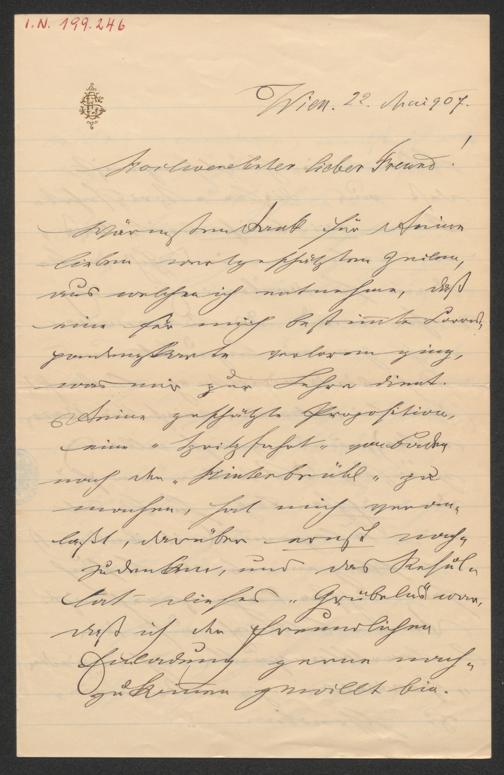 I.N. 199.246
Wien. 22. Mai 907.
Hochverehrter lieber Freund!
Wärmsten Dank für Deine
lieben wertgeschätzten Zeilen,
aus welchen ich entnehme, daß
eine für mich bestimmte Corres-
pondenzkarte verloren ging,
was mir zur Lehre dient.
Deine geschätzte Proposition,
eine „Spritzfahrt" von Baden
nach der „Hinterbrühl" zu
machen, hat mich veran-
laßt, darüber ernst nach-
zudenken, und das Resul-
tat dieses „Grübelns" war,
daß ich der freundlichen
Einladung gerne nach-
zukommen gewillt bin.